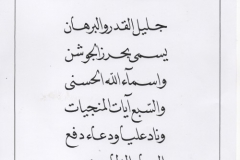 جليل القدر والبرهان
يسمى بحرز الجوشن
واسمآء الله الحسنى
والسبع آيات المنجيات
وناد عليا ودعاء دفع